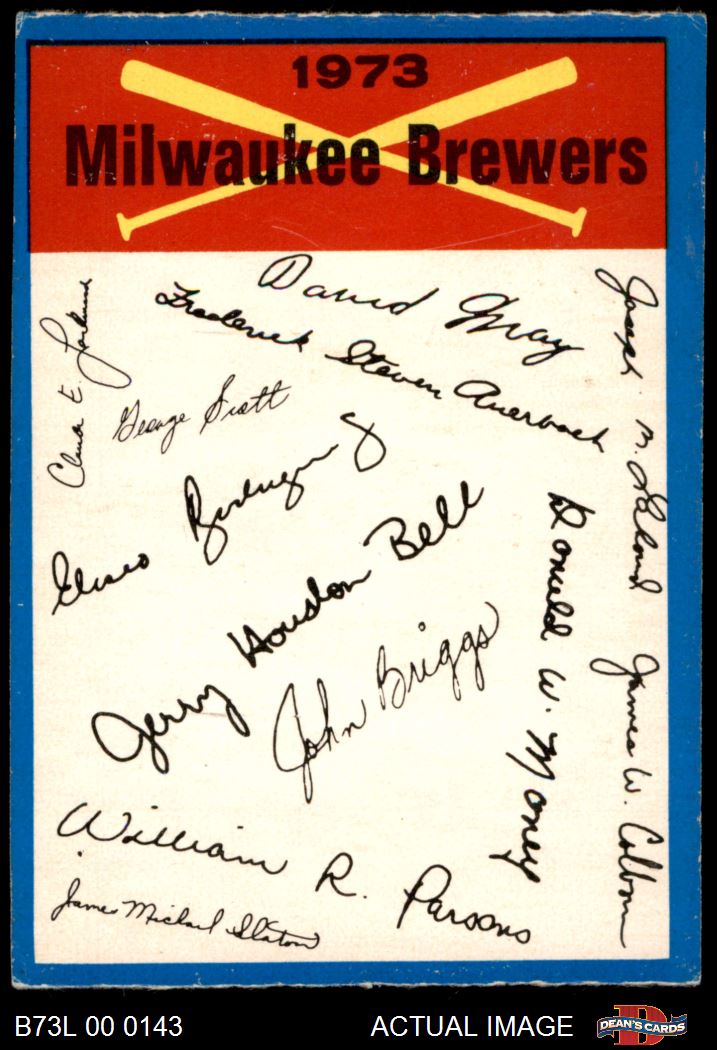 1973
Milwaukee Brewers
David May
Frederick Steven Auerbach
Joseph M. Lahoud
George Scott
Eliseo Rodriguez
Jerry Houston Bell
John Briggs
Donald W. Money
James W. Colborn
William R. Parsons
James Michael Slaton
B73L 00 0143
ACTUAL IMAGE
D
DEAN'S CARDS